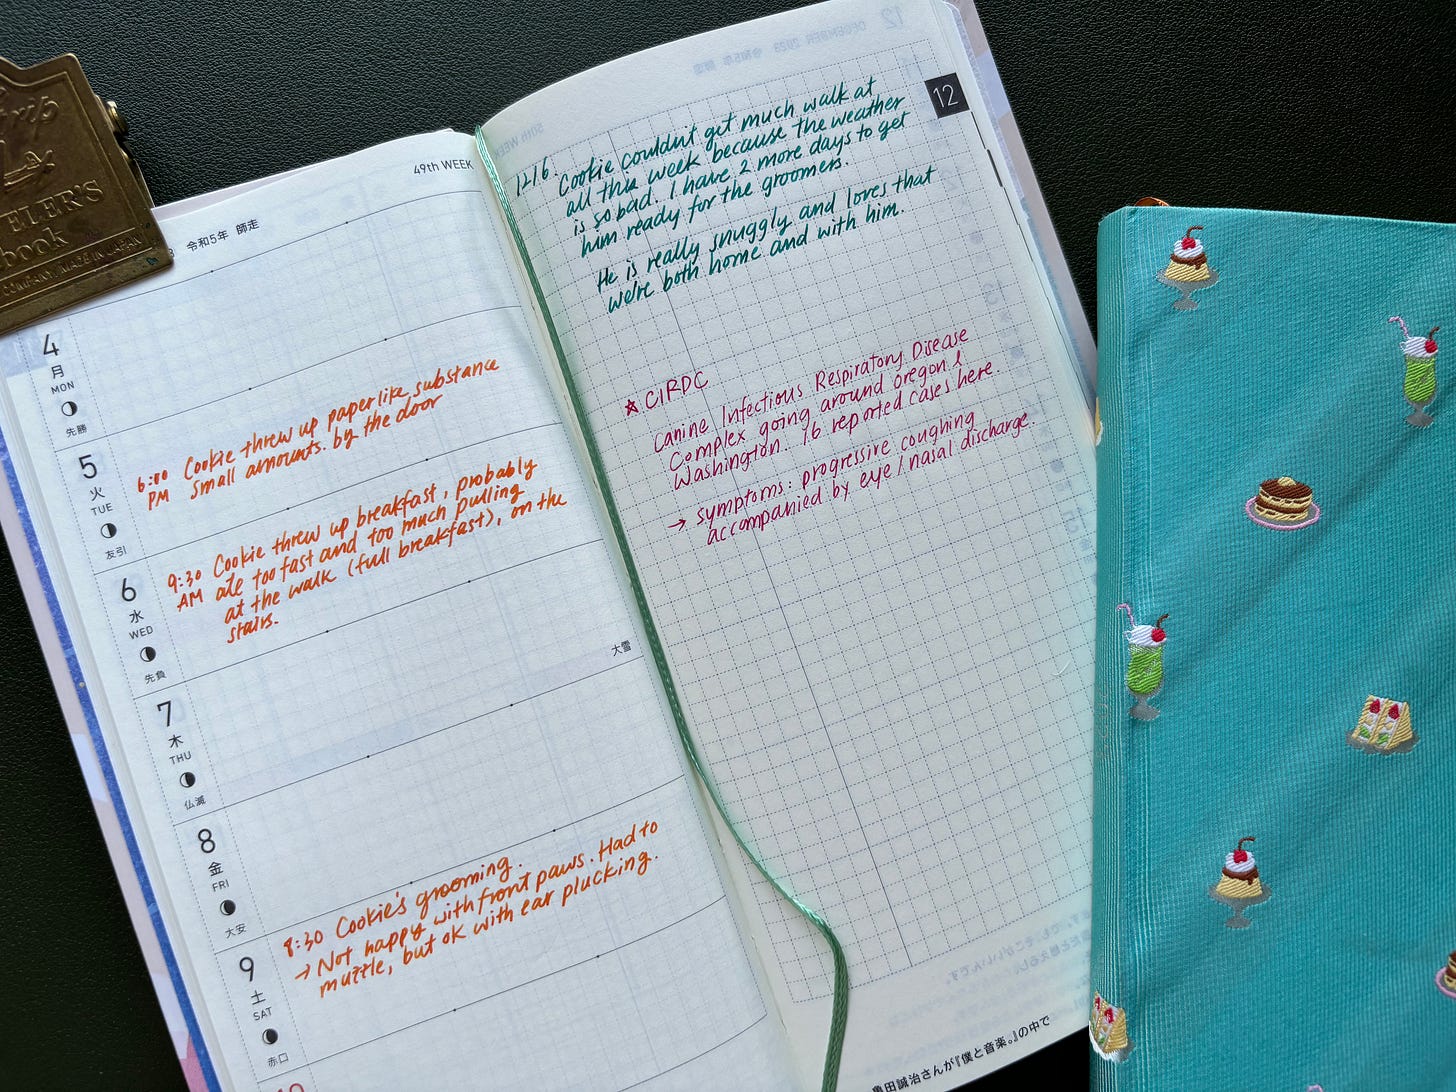 49th WEEK
令和5年 師走
4
月
MON
先勝
5
火
TUE
友引
6:00 PM Cookie threw up paperlike substance
small amounts. by the door
6
水
WED
先負
9:30 AM Cookie threw up breakfast, probably
ate too fast and too much pulling
at the walk (full breakfast), on the
stairs.
7
木
THU
仏滅
大雪
8
金
FRI
大安
9
土
SAT
赤口
8:30 Cookie's grooming.
→ Not happy with front paws. Had to
muzzle, but ok with ear plucking.
10
12
12/6. Cookie couldn't get much walk at
all this week because the weather
is so bad. I have 2 more days to get
him ready for the groomers.
He is really snuggly and loves that
we're both home and with him.
☆ CIRDC
Canine Infectious Respiratory Disease
Complex going around oregon &
Washington. 16 reported cases here.
→ symptoms: progressive coughing
accompanied by eye / nasal discharge.
亀田誠治さんが『僕と音楽。』の中で
book
COMPANY, MADE IN JAPAN